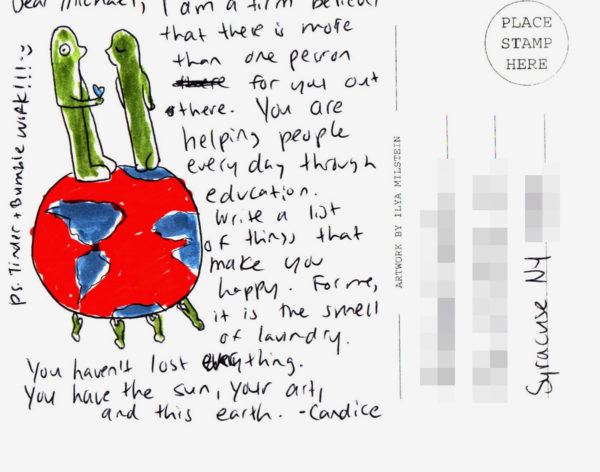 Dear Michael, I am a firm believer
that there is more
than one person
for you out
there. You are
helping people
every day through
education.
Write a list
of things that
make you
happy. For me,
it is the smell
of laundry.
You haven't lost everything.
You have the sun, your art,
and this earth. -Candice
Ps. Tinder + Bumble WORK!!! :)
ARTWORK BY ILYA MILSTEIN
PLACE
STAMP
HERE
Syracuse NY